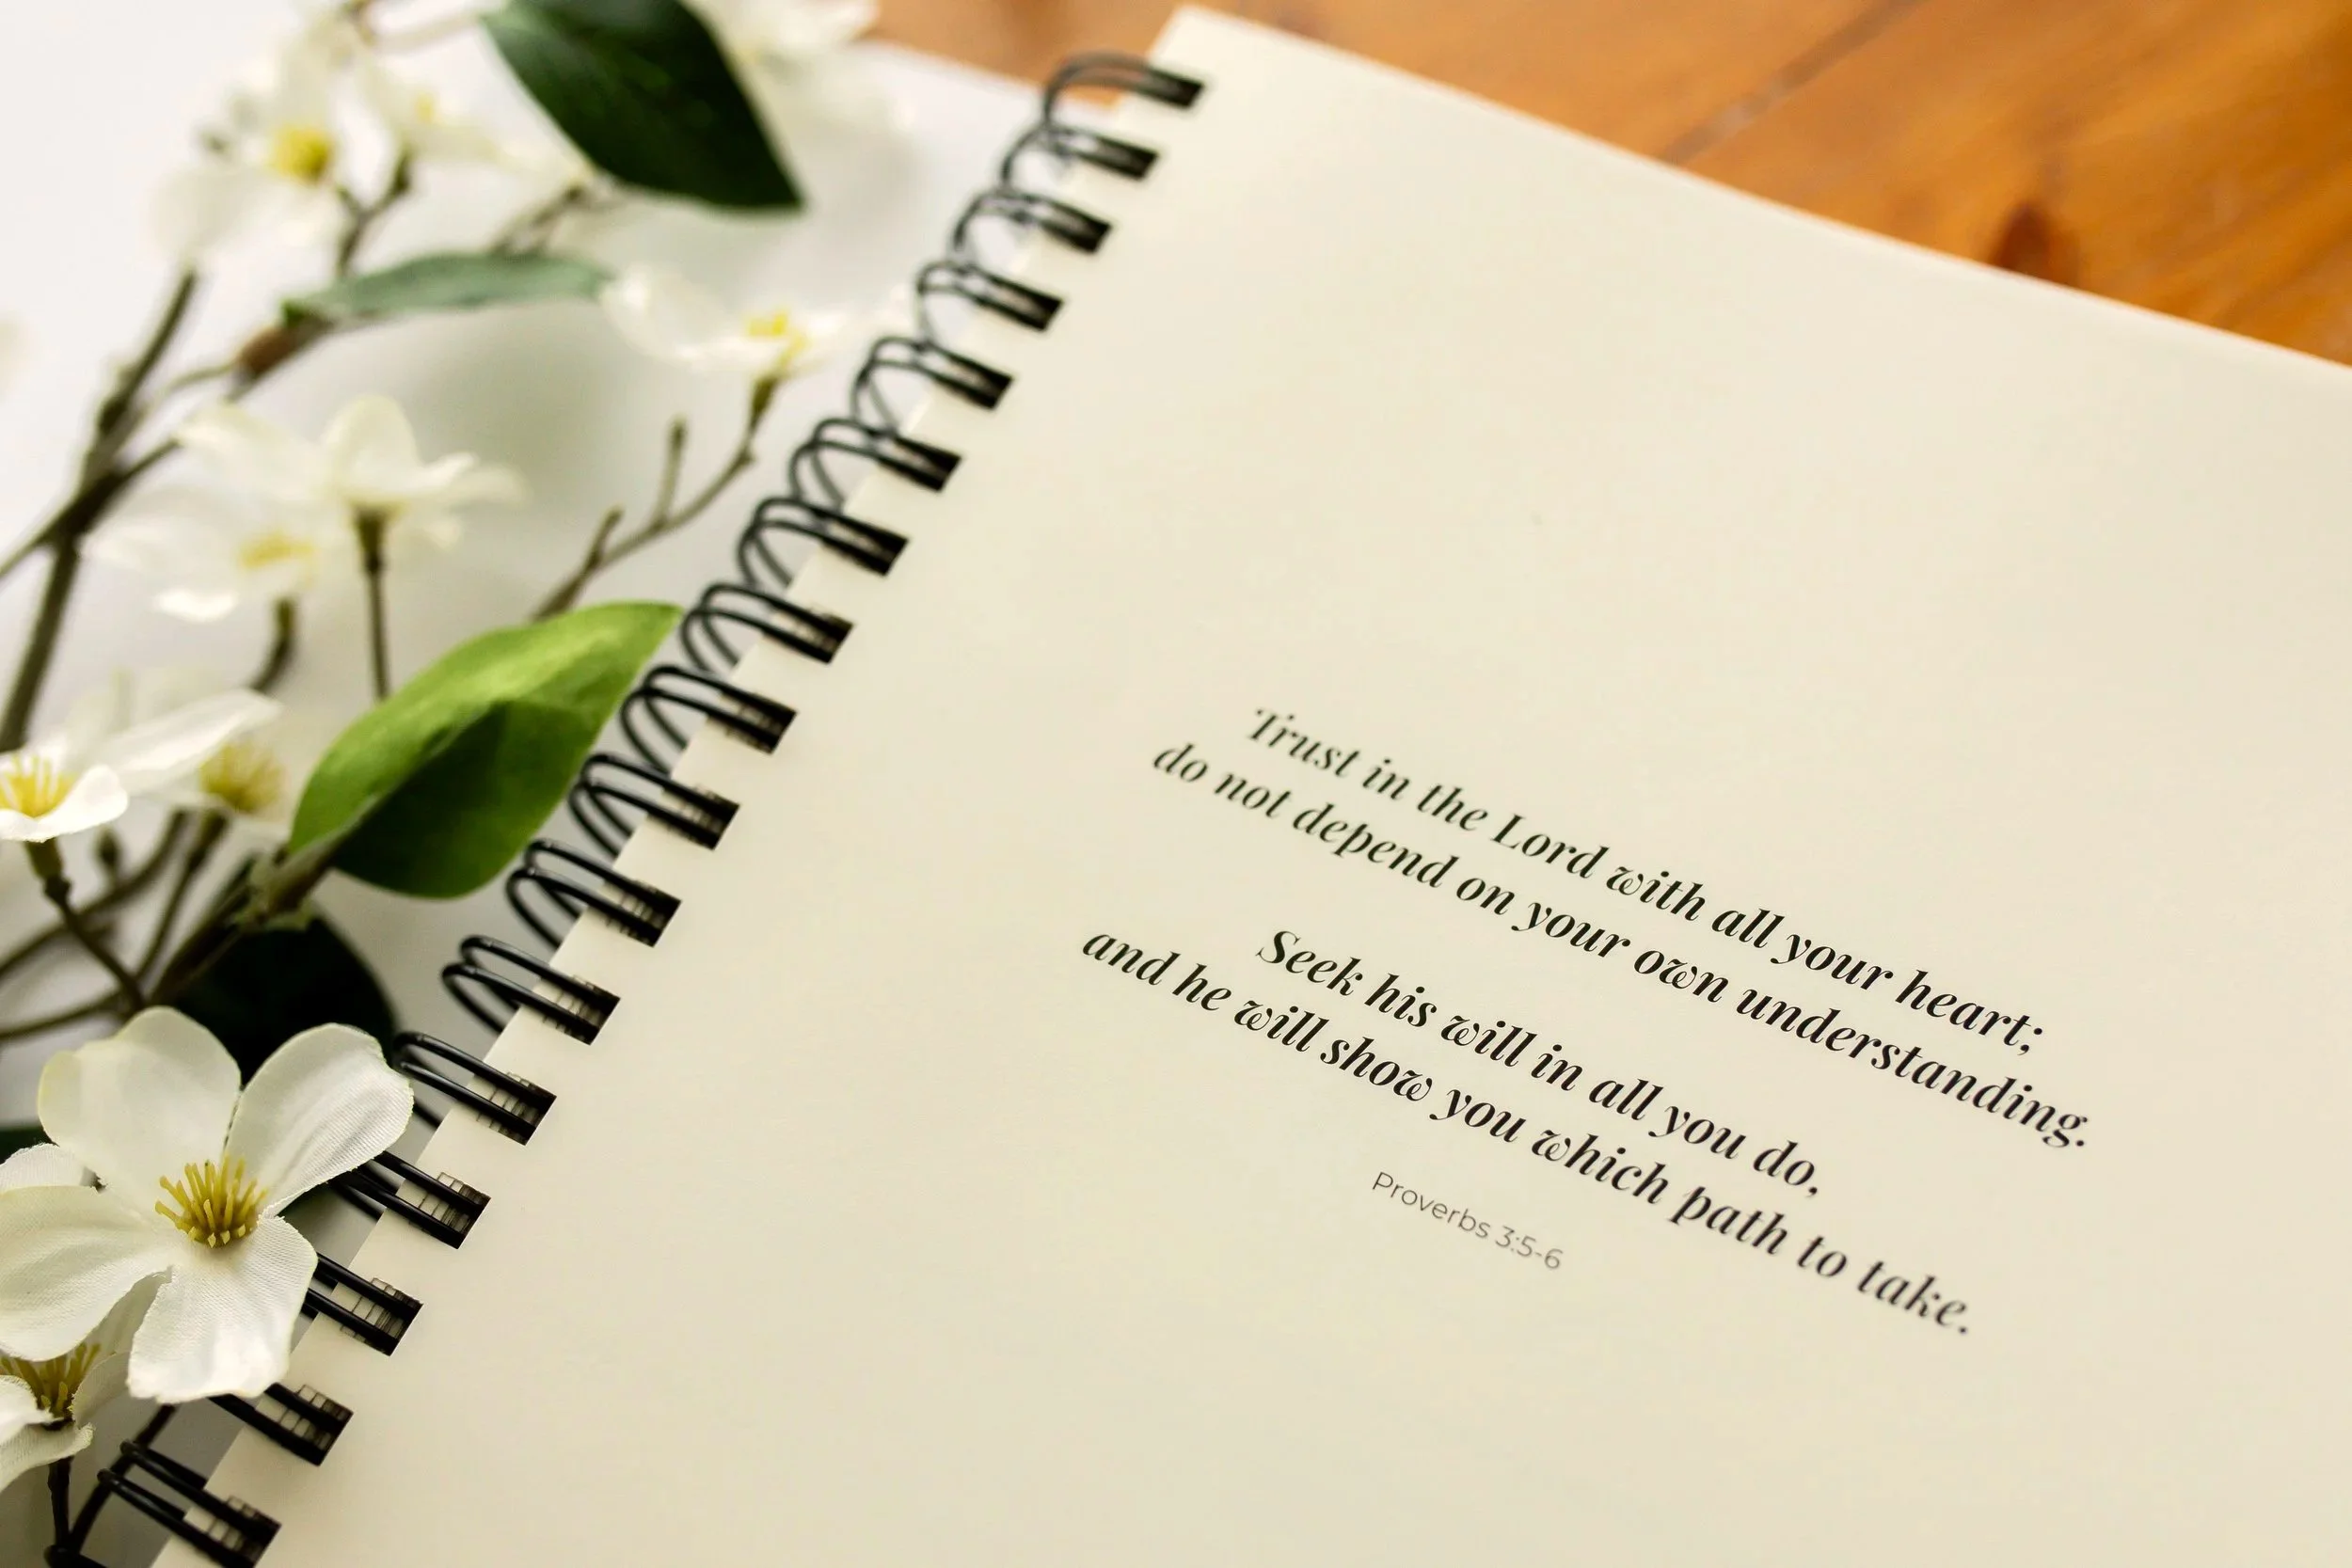 Trust in the Lord with all your heart;
do not depend on your own understanding.
Seek his will in all you do,
and he will show you which path to take.
Proverbs 3:5-6